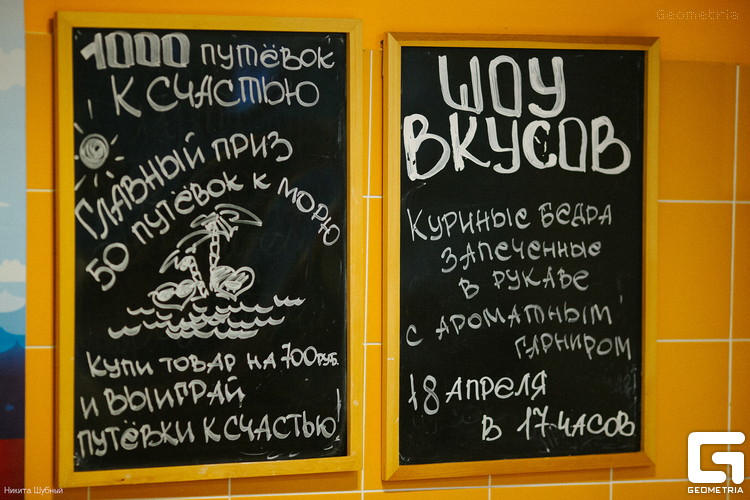 1000 путёвок
к счастью
Главный приз
50 путёвок к морю
купи товар на 700 руб.
и выиграй
путёвки к счастью!
Шоу
вкусов
Куриные бедра
запеченные
в рукаве
с ароматным
гарниром
18 апреля
в 17 часов
Geometria
Никита Шубный
GEOMETRIA